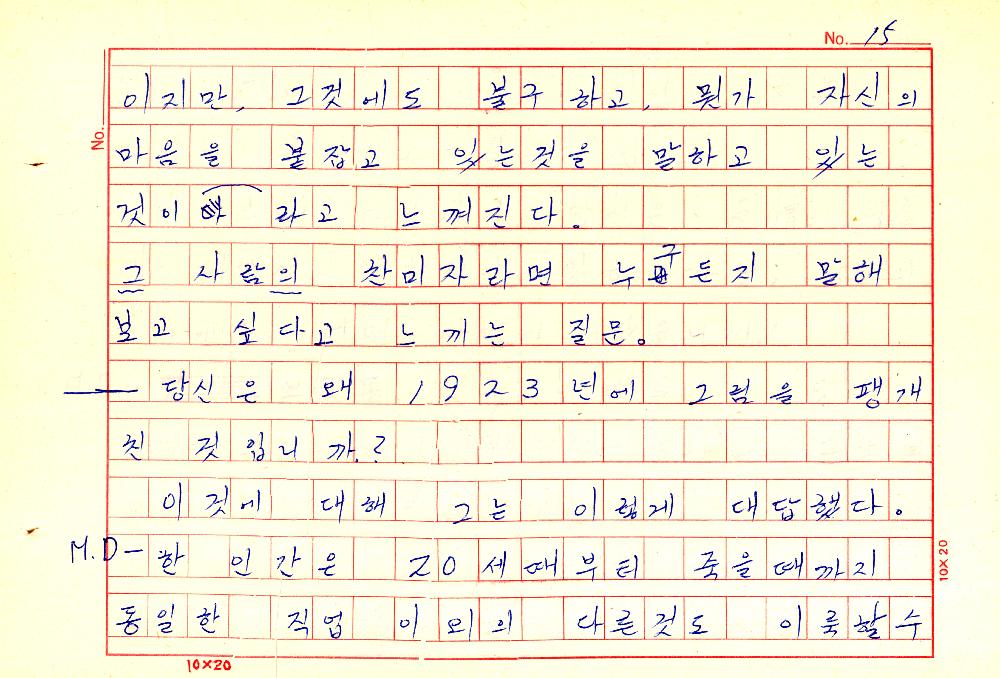 No. 15
No.
이지만, 그것에도 불구하고, 뭔가 자신의
마음을 붙잡고 있는것을 말하고 있는
것이라고 느껴진다.
그 사람의 찬미자라면 누구든지 말해
보고 싶다고 느끼는 질문.
— 당신은 왜 1923년에 그림을 팽개
친 것입니까?
이것에 대해 그는 이렇게 대답했다.
M.D — 한 인간은 20세때부터 죽을때까지
동일한 직업 이외의 다른것도 이룩할수
10×20
10×20